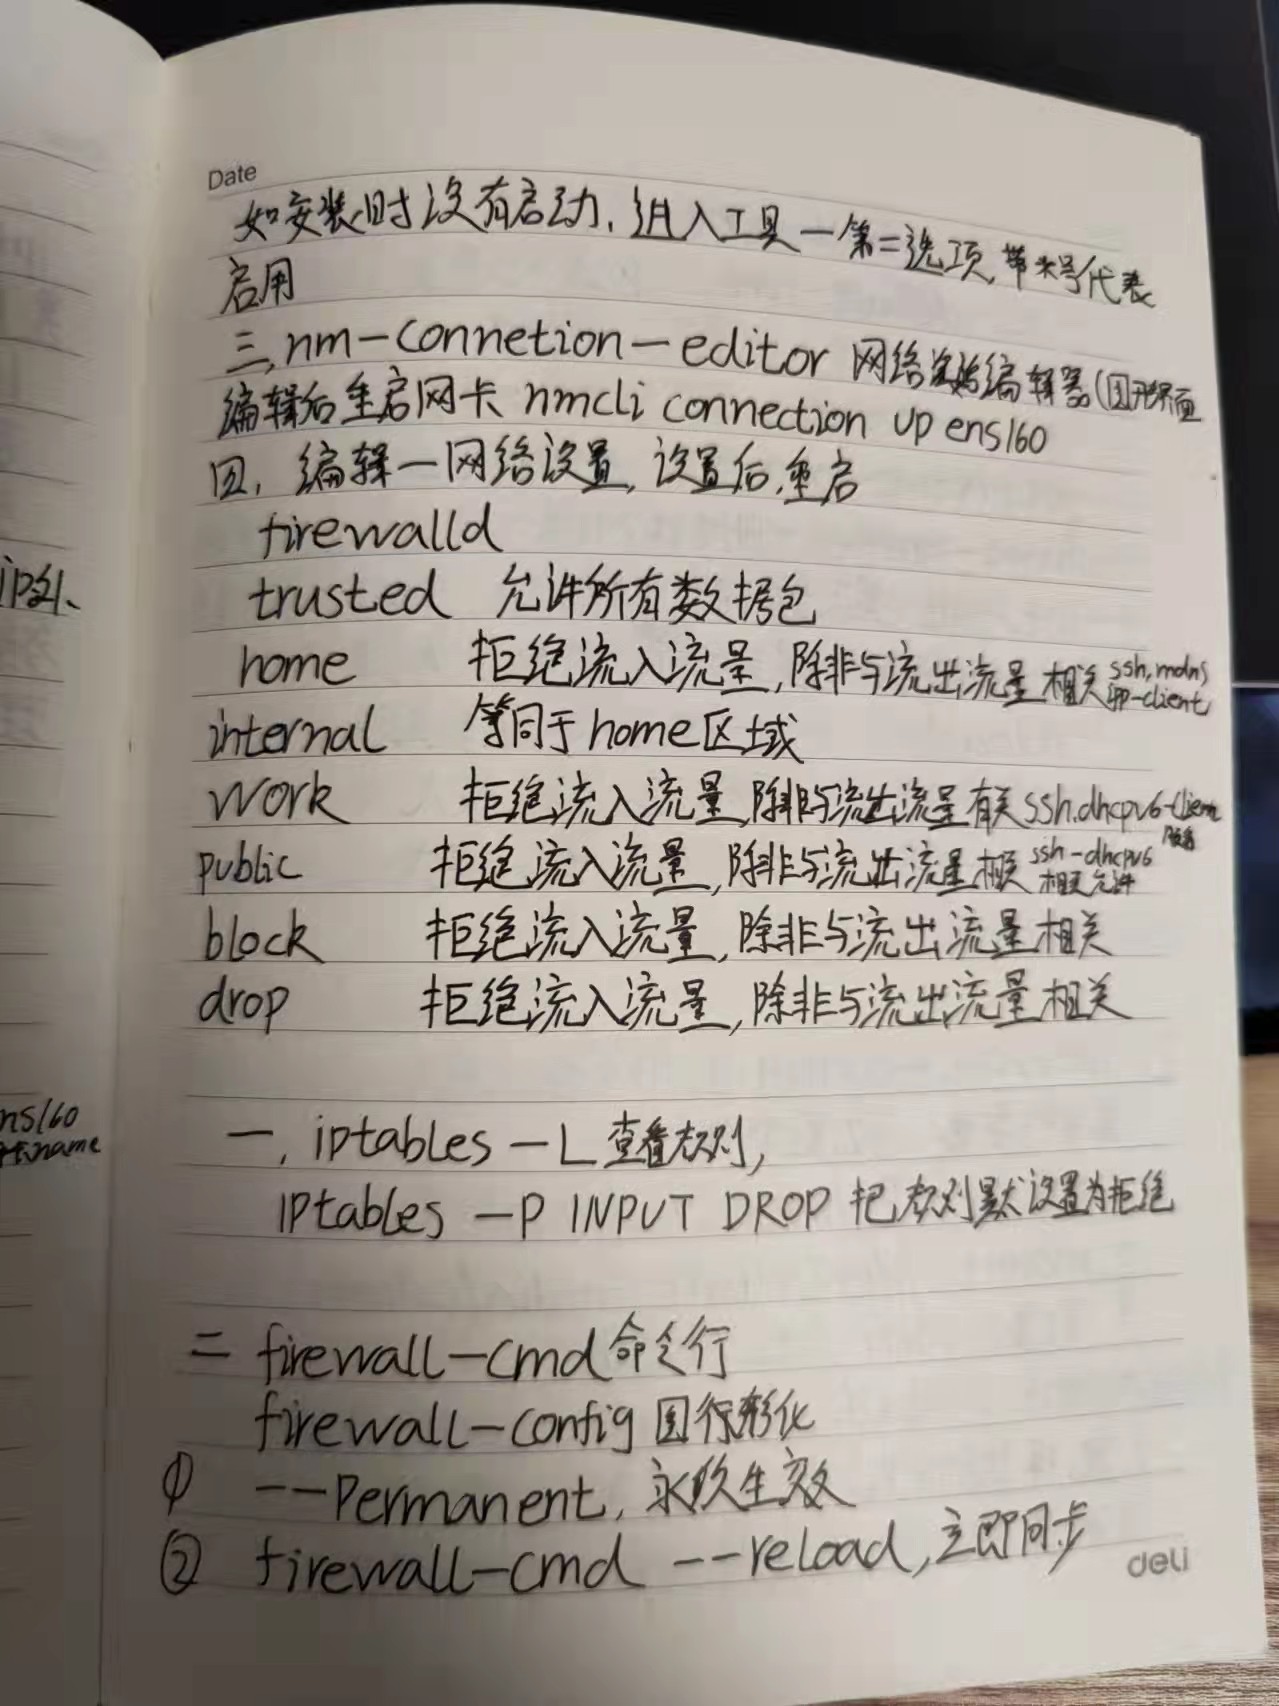 ip列、
ns160
name
Date
如安装时没有启动，进入工具一第二选项，带*号代表
启用
三，nm-connetion-editor 网络编辑器(图形界面
编辑后重启网卡 nmcli connection up ens160
四，编辑一网络设置，设置后，重启
firewalld
trusted 允许所有数据包
home 拒绝流入流量，除非与流出流量相关 ssh,mdns
-client
internal 等同于home区域
work 拒绝流入流量，除非与流出流量有关 ssh.dhcpv6-client
服务
public 拒绝流入流量，除非与流出流量相关 ssh-dhcpv6
相关允许
block 拒绝流入流量，除非与流出流量相关
drop 拒绝流入流量，除非与流出流量相关
一，iptables -L 查看规则，
iptables -P INPUT DROP 把规则默设置为拒绝
二 firewall-cmd 命令行
firewall-config 图行形化
① --Permanent，永久生效
② firewall-cmd --reload，立即同步
deli